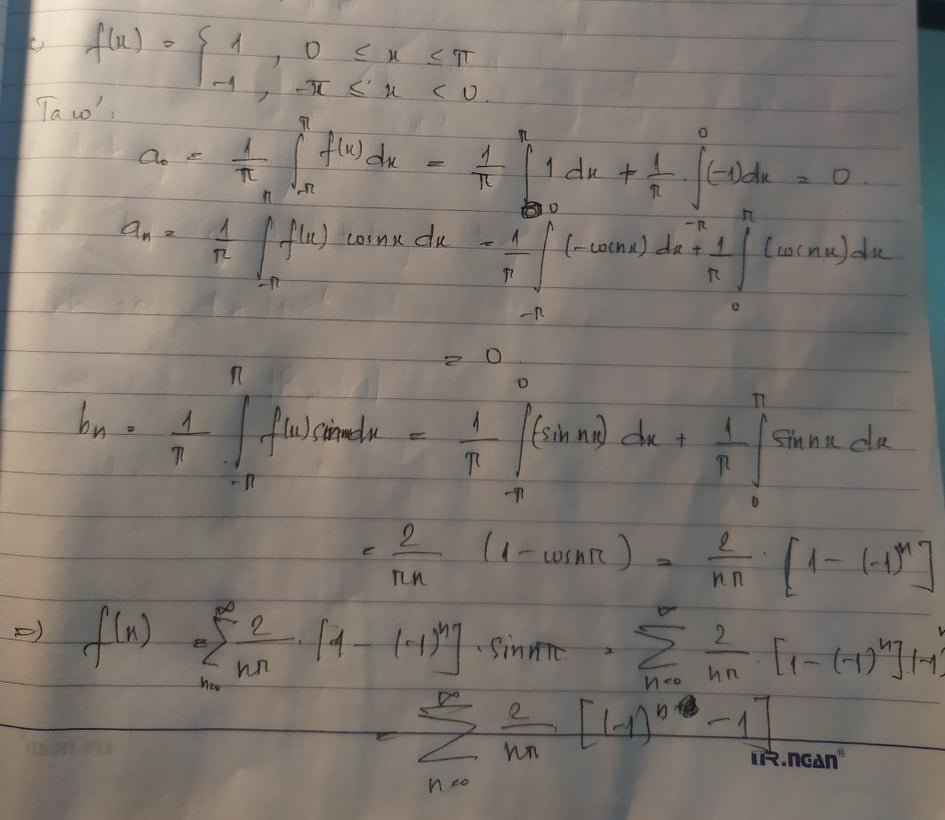 c, f(x) = { 1 , 0 ≤ x ≤ π
-1 , -π ≤ x < 0.
Ta có:
a₀ = 1/π ∫_{-π}^{π} f(x) dx = 1/π ∫_{0}^{π} 1 dx + 1/π . ∫_{-π}^{0} (-1) dx = 0.
aₙ = 1/π ∫_{-π}^{π} f(x) cosnx dx = 1/π ∫_{-π}^{0} (-cosnx) dx + 1/π ∫_{0}^{π} (cosnx) dx
= 0
bₙ = 1/π ∫_{-π}^{π} f(x) sinnx dx = 1/π ∫_{-π}^{0} (-sin nx) dx + 1/π ∫_{0}^{π} sinnx dx
= 2/πn (1 - cosnπ) = 2/nπ . [1 - (-1)ⁿ]
⇒) f(x) = ∑_{n=0}^{∞} 2/nπ . [1 - (-1)ⁿ] . sinnπ = ∑_{n=0}^{∞} 2/nπ . [1 - (-1)ⁿ] . (-1)ⁿ
= ∑_{n=0}^{∞} 2/nπ [(-1)ⁿ - 1]
TR.NGAN®